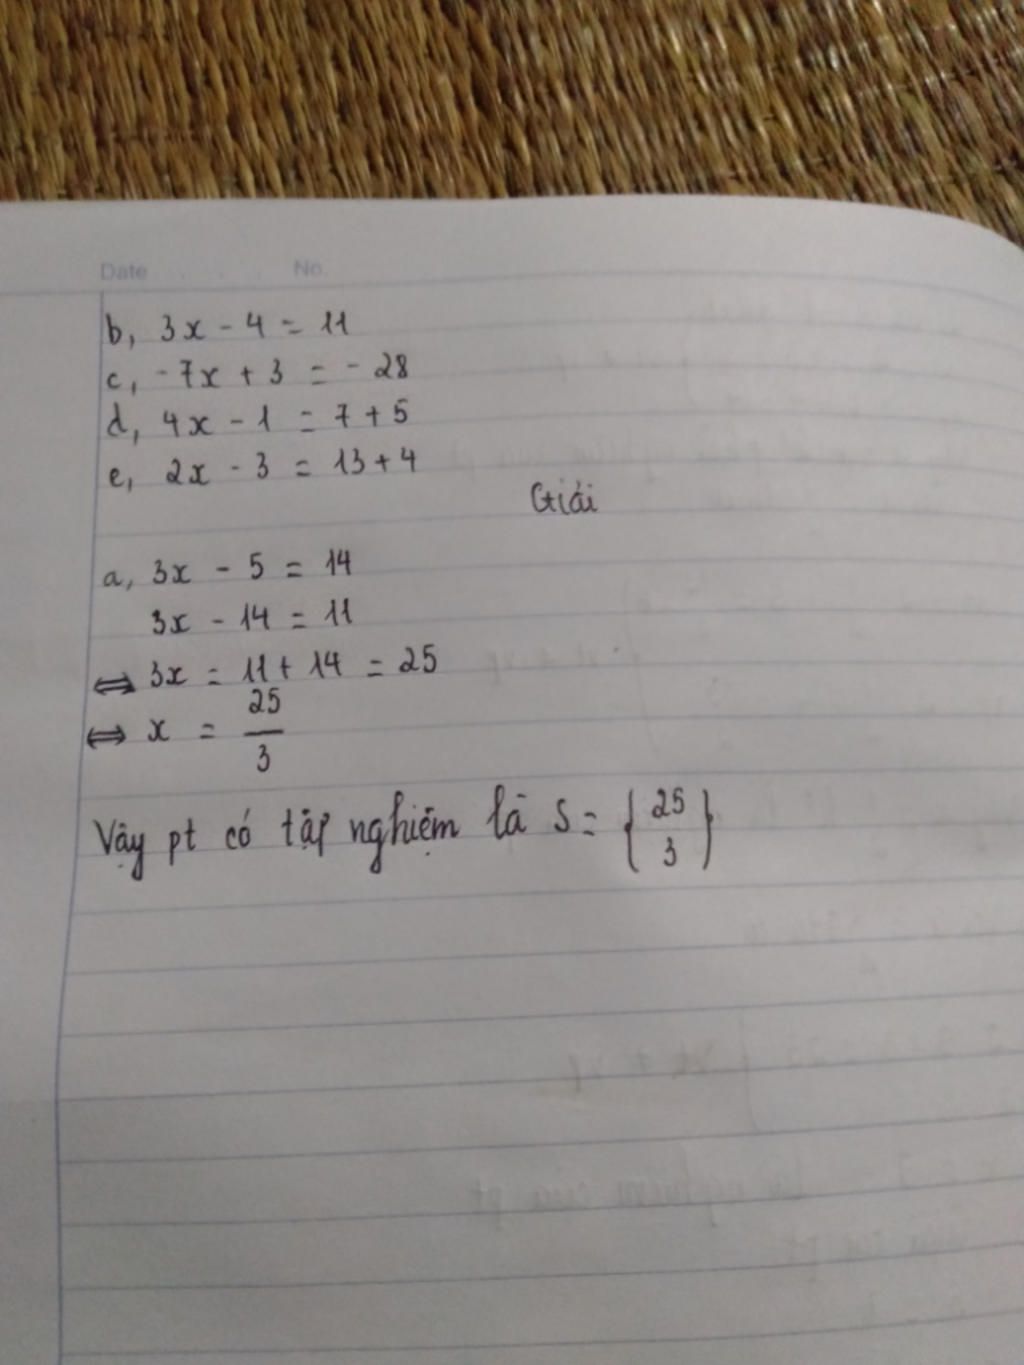 Date No.
b, 3x - 4 = 11
c, -7x + 3 = - 28
d, 4x - 1 = 7 + 5
e, 2x - 3 = 13 + 4
Giải
a, 3x - 5 = 14
3x - 14 = 11
⇔ 3x = 11 + 14 = 25
⇔ x = 25/3
Vậy pt có tập nghiệm là S = {25/3}